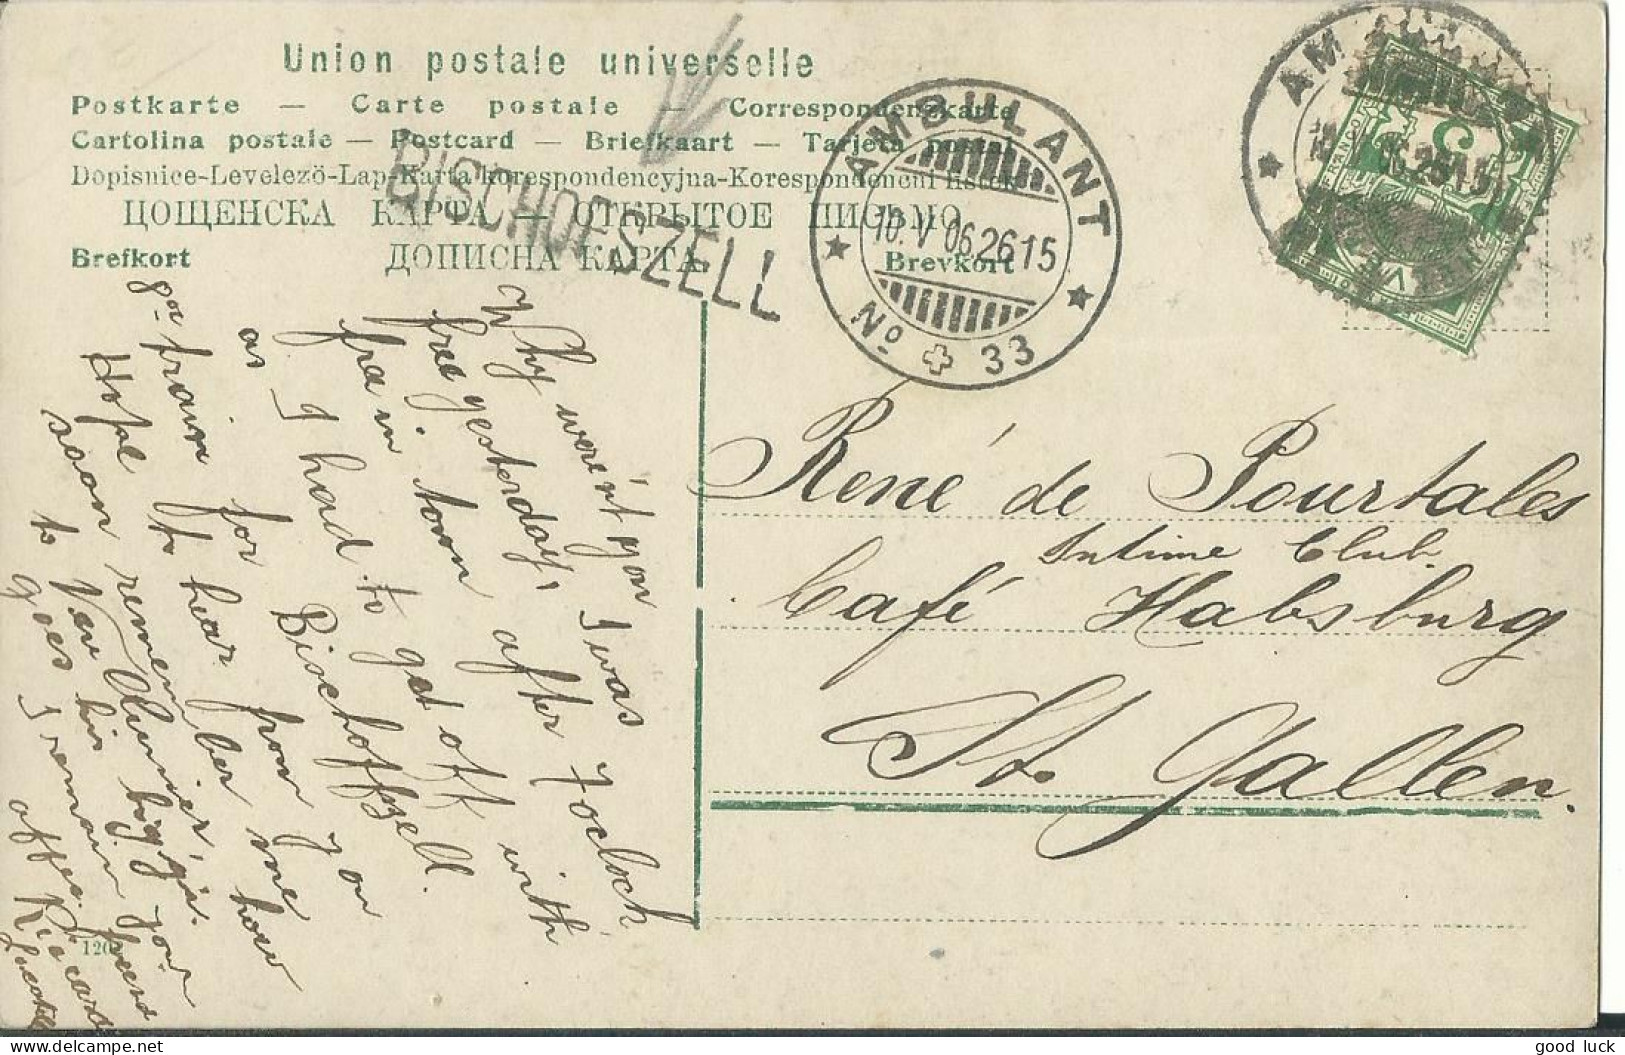 Union postale universelle
Postkarte — Carte postale — Correspondenzkarte
Cartolina postale — Postcard — Briefkaart — Tarjeta postal
Dopisnice-Levelező-Lap-Karta korespondencyjna-Korespondenčni listek
ЦОЩЕНСКА КАРФА — ОТКРЫТОЕ ПИСЬМО
Brefkort ДОПИСНА КАРТА Brevkort
BISCHOFSZELL
AMBULANT
10. V 06 2615
No 33
AM
06 2615
FRANCO
5
Why were't you
free yesterday; I was
in town after 7 oclock
as I had to get off with
8ar train for Bischoffzell.
Hope to hear from you
soon remember me how
to Van
goes his
I remain your
affec. friend
Riccard
120
René de Pourtales
Intime Club.
Café Habsburg
St. Gallen.
good luck